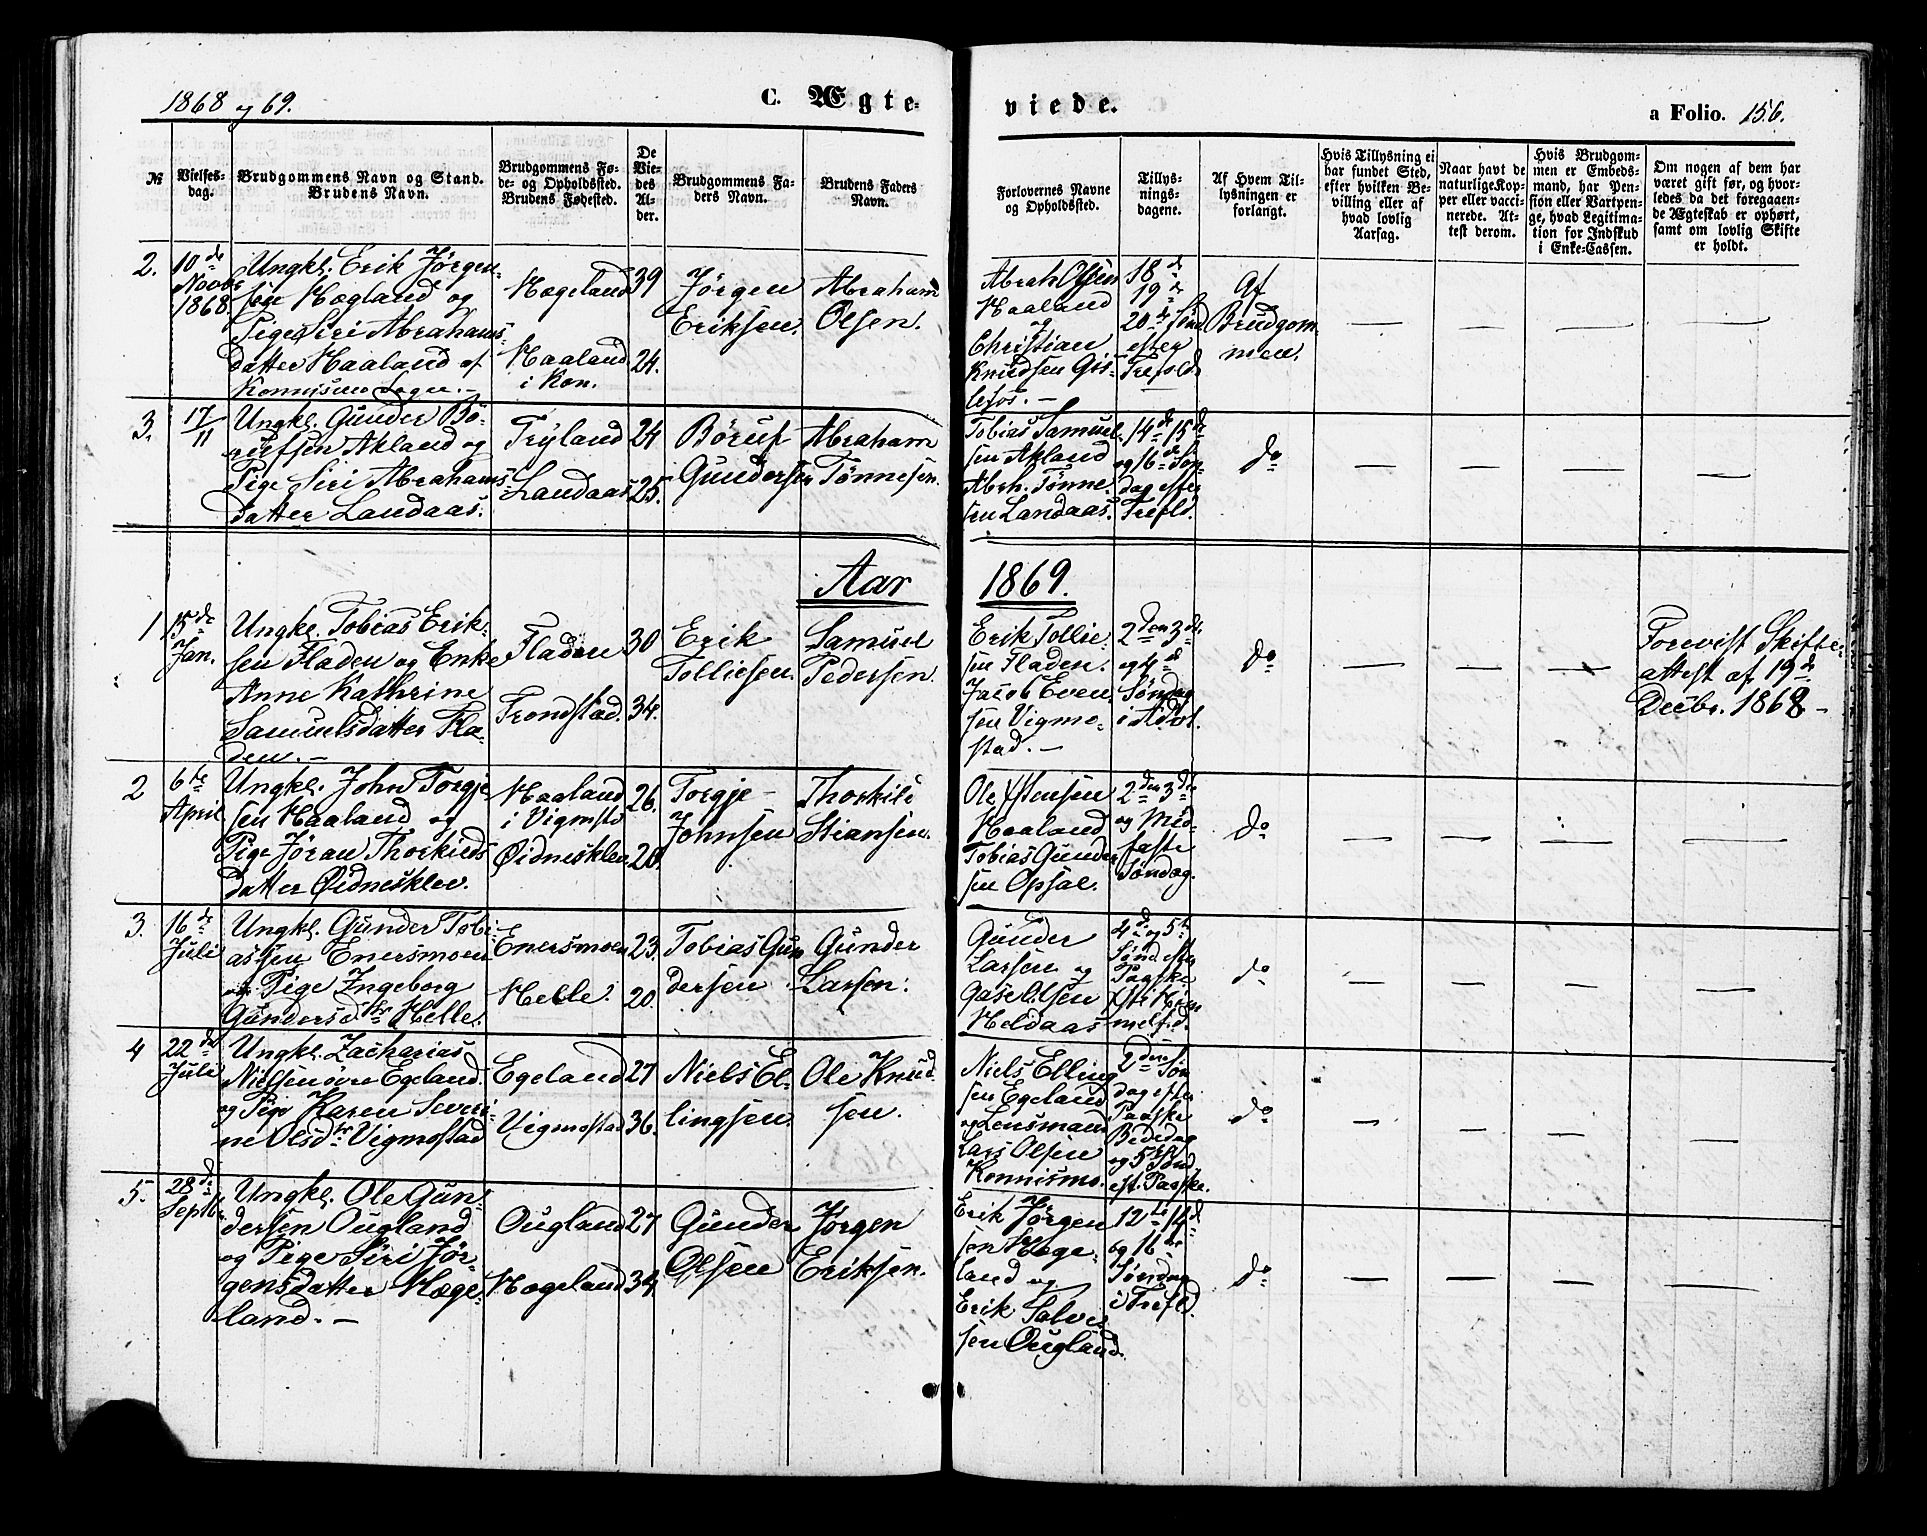 1868 og 69.
C. Ægte-
viede.
a Folio. 156.
№
Vielses-
dag.
Brudgommens Navn og Stand.
Brudens Navn.
Brudgommens Fø-
de- og Opholdssted.
Brudens Fødested.
De
Vie-
des
Al-
der.
Brudgommens Fa-
ders Navn.
Brudens Faders
Navn.
Forlovernes Navne
og Opholdssted.
Tillys-
nings-
dagene.
Af Hvem Til-
lysningen er
forlangt.
Hvis Tillysning ei
har fundet Sted,
efter hvilken Be-
villing eller af
hvad lovlig
Aarsag.
Naar havt de
naturlige Kop-
per eller vacci-
nerede. At-
test derom.
Hvis Brudgom-
men er Embeds-
mand, har Pen-
sion eller Vartpen-
ge, hvad Legitima-
tion for Indskud
i Enke-Cassen.
Om nogen af dem har
været gift før, og hvor-
ledes da det foregaaen-
de Ægteskab er ophørt,
samt om lovlig Skifte
er holdt.
2.
10de
Novbr
1868.
Ungkl. Erik Jørgen-
sen Hægland og
Pige Siri Abrahams-
datter Haaland af
Konnismo Sogn. -
Hægeland
Haaland
i Kon.
39
24.
Jørgen
Eriksen.
Abraham
Olsen.
Abrah Olsen
Haaland
og
Christian
Knudsen Gis-
lefos. -
18d
19d
20de Sønd
efter
Trefold.
Af
Brudgom
men.
3.
17/11
Ungkl. Gunder Bø-
rufsen Akland og
Pige Siri Abrahams-
datter Landaas.
Tryland
Landaas
24
25.
Børuf
Gundersen
Abraham
Tønnesen.
Tobias Samuel-
sen Akland
Abrh. Tønne-
sen Landaas.
14de 15de
og 16de Søn-
dag efter
Trefld.
do
Aar 1869.
1
15de
Jan.
Ungkl. Tobias Erik-
sen Fladen og Enke
Anne Kathrine
Samuelsdatter Fla-
den. -
Fladen
Trondstad.
30
34.
Erik
Tolliesen.
Samuel
Pedersen.
Erik Tollie-
sen Fladen.
Jacob Even-
sen Vigmo-
stad. -
2den 3de
og 4d
Søndag
i Advt.
do
Forevist Skifte-
attest af 19de
Decbr. 1868 -
2
6te
April
Ungkl. John Torgje-
sen Haaland og
Pige Jøran Thorkilds
datter Øidnesklev.
Haaland
i Vigmstd
Øidnesklev
26.
20.
Torgje -
Johnsen
Thorkild
Stiansen.
Ole Østensen
Haaland
Tobias Gunder
sen Opsal.
2den 3de
og Mid-
faste
Søndag.
do
3.
16de
Juli
Ungkl. Gunder Tobi-
assen Enersmoen
og Pige Ingeborg
Gundersdtr Helle.
Enersmoen
Helle.
23.
20.
Tobias Gun
dersen
Gunder
Larsen.
Gunder
Larsen og
Olsen
Heldaas
4d og 5te
Sønd efter
Paaske
do
4
22de
Juli
Ungkl. Zacharias
Nielsen øvre Egeland.
og Pige Karen Severi-
ne Olsdtr Vigmostad
Egeland
Vigmostad
27
36.
Niels El-
lingsen.
Ole Knud-
sen.
Niels Elling
sen Egeland
og Lensmand
Lars Olsen
Konnismo.
2den Søn
dag efter
Paaske
Bededag
og 5te Sønd
eft. Paaske.
do
5.
28de
Septbr
Ungkl. Ole Gun-
dersen Ougland
og Pige Siri Jør-
gensdatter Hæge-
land. -
Ougland
Hægeland
27
34
Gunder
Olsen
Jørgen
Eriksen.
Erik Jørgen
sen Hæge-
land og
Erik Salve-
sen Ougland.
12te 14d
og 16de
Søndag
i Trefld.
do